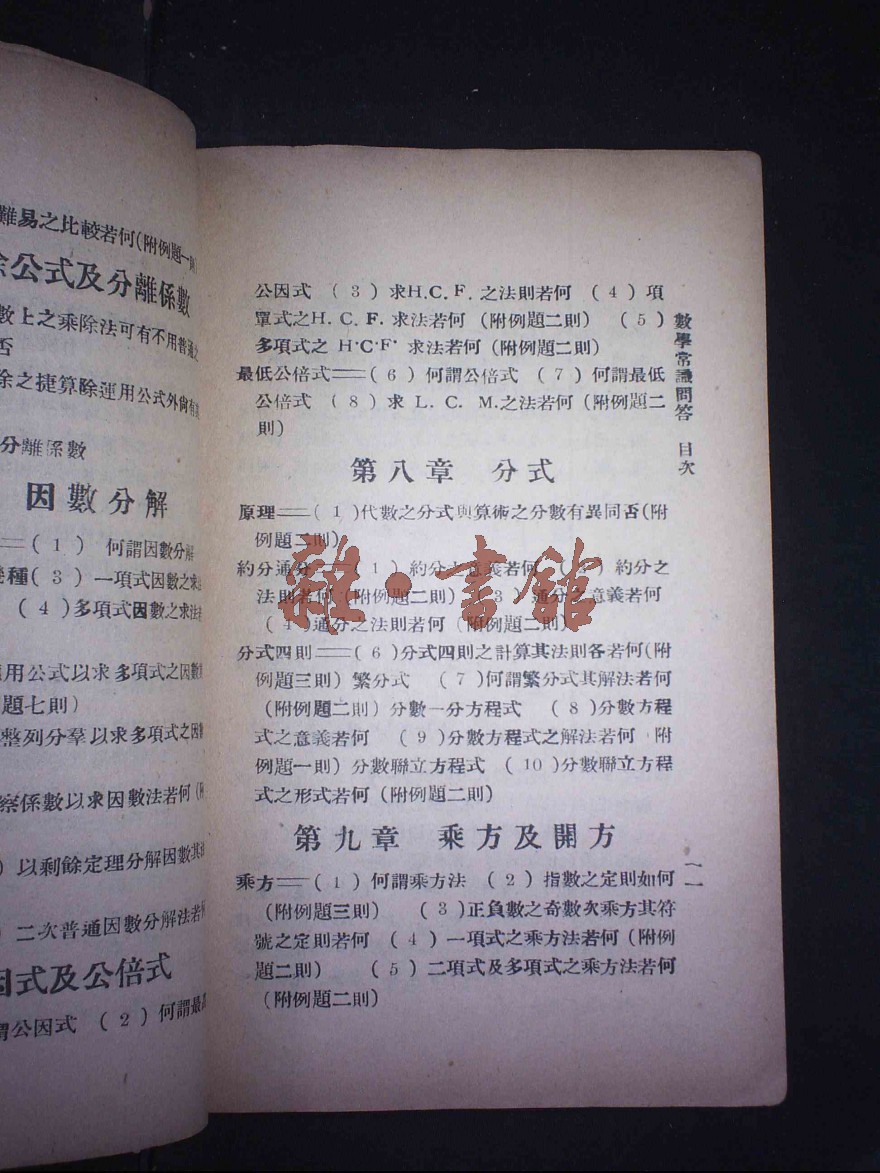 難易之比較若何(附例題一則)
公式及分離係數
數上之乘除法可有不用普通之
否
余之捷算除運用公式外尙有其
分離係數
因數分解
==(1) 何謂因數分解
種(3) 一項式因數之求法
(4)多項式因數之求法若
用公式以求多項式之因數
題七則)
整列分羣以求多項式之因數
察係數以求因數法若何(附
) 以剩餘定理分解因數其法
) 二次普通因數分解法若何
因式及公倍式
謂公因式 (2) 何謂最高
公因式 (3) 求H.C.F.之法則若何 (4) 項
單式之H.C.F.求法若何 (附例題二則) (5)
多項式之 H·C·F· 求法若何 (附例題二則)
最低公倍式==(6) 何謂公倍式 (7) 何謂最低
公倍式 (8) 求 L.C.M.之法若何 (附例題二
則)
第八章 分式
原理==(1)代數之分式與算術之分數有異同否(附
例題二則)
約分通分==(1) 約分之意義若何 (2) 約分之
法則若何 (附例題二則) (3) 通分之意義若何
(4)通分之法則若何 (附例題二則)
分式四則==(6)分式四則之計算其法則各若何(附
例題三則) 繁分式 (7)何謂繁分式其解法若何
(附例題二則) 分數一分方程式 (8)分數方程
式之意義若何 (9)分數方程式之解法若何 附
例題一則) 分數聯立方程式 (10)分數聯立方程
式之形式若何 (附例題二則)
第九章 乘方及開方
乘方==(1) 何謂乘方法 (2) 指數之定則如何
(附例題三則) (3)正負數之奇數次乘方其符
號之定則若何 (4) 一項式之乘方法若何 (附例
題二則) (5) 二項式及多項式之乘方法若何
(附例題二則)
數學常識問答 目次
一一
雜·書館